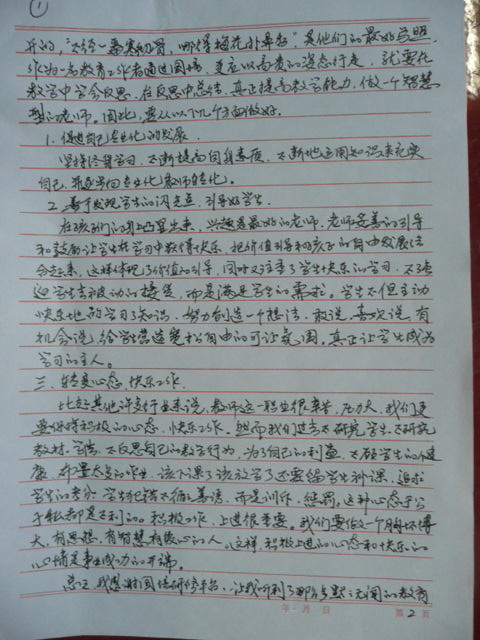 ①
开的,“不经一番寒彻骨,哪得梅花扑鼻香”是他们的最好说明
作为一名教育工作者通过国培,更应以高贵的姿态行走,就要在
教学中学会反思,在反思中总结,真正提高教学能力,做个智慧
型的老师。因此,要从以下几个方面做好。
1.促进自己专业化的发展.
坚持终身学习,不断提高自身素质,不断地运用知识来充实
自己,并逐步向专业化教师转化。
2.善于发现学生的闪光点,引导好学生.
在孩子们的身上凸显出来,兴趣是最好的老师,老师妥善的引导
和鼓励让学生在学习中取得快乐,把价值引导和孩子的自由发展结
合起来,这样体现了价值的引导,同时又注重了学生快乐的学习,不强
迫学生去被动的接受,而是满足学生的需求。学生不但主动
快乐地的学习了知识,努力创造一个想活、敢说、喜欢说、有
机会说,给学生营造宽松自由的可让氛围,真正让学生成为
学习的主人。
三.转变心态 快乐工作.
比起其他许多行业来说,教师这一职业很辛苦,压力大,我们更
要保持积极的心态,快乐工作。然而我们过去不研究学生,不研究
教材,不反思自己的教学行为,为了自己的利益,不顾学生的健
康,布置太多的作业,该下课了该放学了还要给学生补课,追求
学生的考分,学生犯错不循循善诱,而是训斥、惩罚,这种心态于公
于私都是不利的。积极工作,上进很重要。我们要做一个胸怀博
大,有思想,有智慧有爱心的人。这样,积极上进的心态和快乐的
心情是事业成功的开端。
总之,我感谢国培研修平台,让我听到了那么多默默无闻的教育
年 月 日 第2页